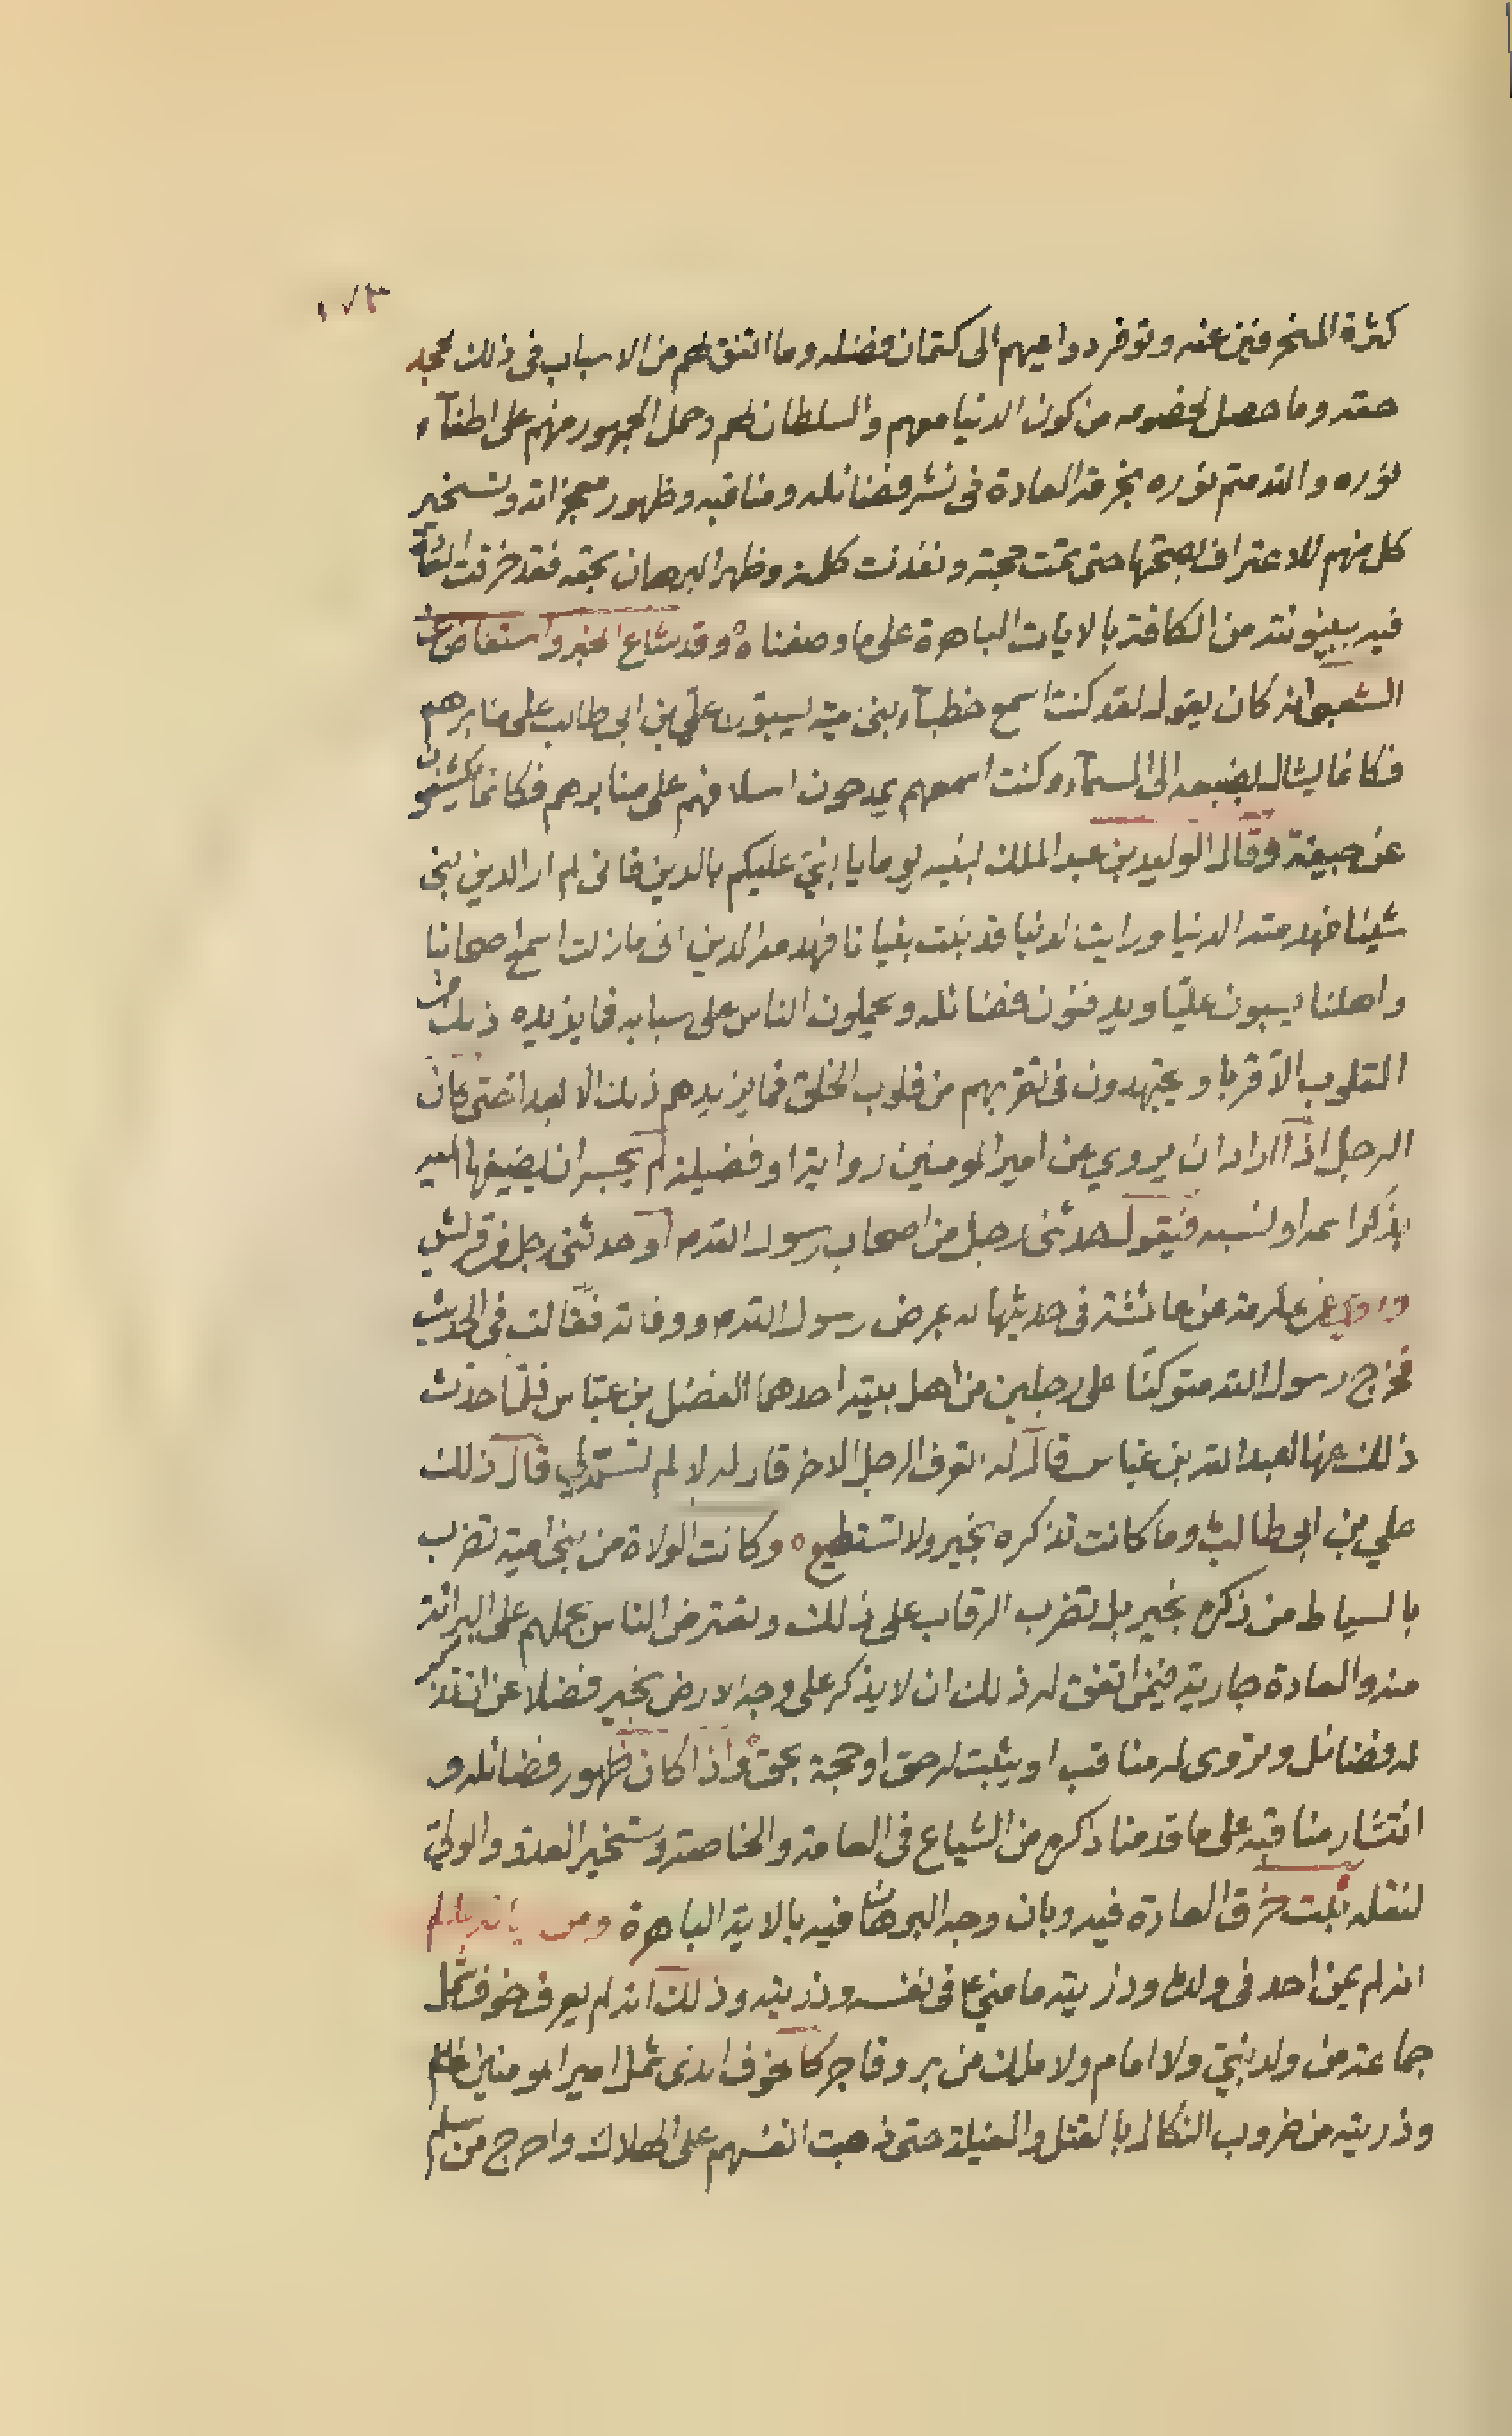 ١٧٣
كثرة المنحرفين عنه وتوفر دواعيهم الى كتمان فضله وما اتفق لهم من الاسباب فى ذلك لجحد
حقه وما حصل لخصومه من كون الدنيا معهم والسلطان لهم وحمل الجمهور منهم على اطفآء
نوره والله متم نوره بخرقه العادة فى نشر فضائله ومناقبه وظهور معجزاته وتسخير
كل منهم للاعتراف بصحتها حتى تمت حجته ونفذت كلمته وظهر البرهان بحقه فقد خرقت العادة
فيه ببينونته من الكافة بالايات الباهرة على ما وصفناه وقد شاع الخبر واستفاض عن
الشعبى انه كان يقول لقد كنت اسمع خطبآء بنى امية يسبون علي بن ابى طالب على منابرهم
فكانما يشال بضبعه الى السمآء وكنت اسمعهم يمدحون اسلافهم على منابرهم فكانما يكشفون
عن جيفة وقال الوليد بن عبد الملك لبنيه يوما يا بنيّ عليكم بالدين فانى لم ار الدين بنى
شيئا فهدمته الدنيا ورايت الدنيا قد بنت بنيانا فهدمه الدين انى مازلت اسمع اصحابنا
واهلنا يسبون عليّا ويدفنون فضائله ويحملون الناس على سبابه فما يزيده ذلك من
القلوب الا قربا ويجتهدون فى تقربهم من قلوب الخلق فما يزيدهم ذلك الا بعدا حتى كان
الرجل اذا اراد ان يروي عن امير المومنين رواية او فضيلة لم يجسر ان يضيفها اليه
بذكر اسمه او نسبه فيقول حدثنى رجل من اصحاب رسول الله ص او حدثنى رجل من قريش
وروي عن عكرمة عن عائشة فى حديثها له بمرض رسول الله ص ووفاته فقالت فى الحديث
فخرج رسول الله متوكئا على رجلين من اهل بيته احدهما الفضل بن عباس فلما حدث
ذلك عنها لعبد الله بن عباس قال له اتعرف الرجل الاخر قال له لا لم تسمه لي قال ذلك
علي بن ابى طالب وما كانت تذكره بخير ولا تستطيع ه وكانت الولاة من بنى امية تضرب
بالسياط من ذكره بخير بل تضرب الرقاب على ذلك وتعترض الناس بحملهم على البرائة
منه والعادة جارية فيمن اتفق له ذلك ان لا يذكر على وجه الارض بخير فضلا عن ان تذكر
له فضائل وتروى له مناقب او يثبت له حق او حجة بحق واذا كان ظهور فضائله و
انتشار مناقبه على ما قدمنا ذكره من الشياع فى العامة والخاصة وتسخير العدو والولي
لنقله ثبت خرق العادة فيه وبان وجه البرهان فيه بالاية الباهرة ومن
انه لم يمن احد فى ولده وذريته ما مني ع فى نفسه وذريته وذلك انه لم يعرف خوف شمل
جماعة من ولد نبيّ ولا امام ولا ملك من بر وفاجر كالخوف الذى شمل امير المومنين
وذريته من ضروب النكال بالقتل والغيلة حتى ذهبت انفسهم على الهلاك واحرج من